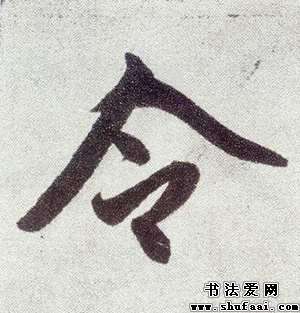 令
书法爱网
www.shufaai.com